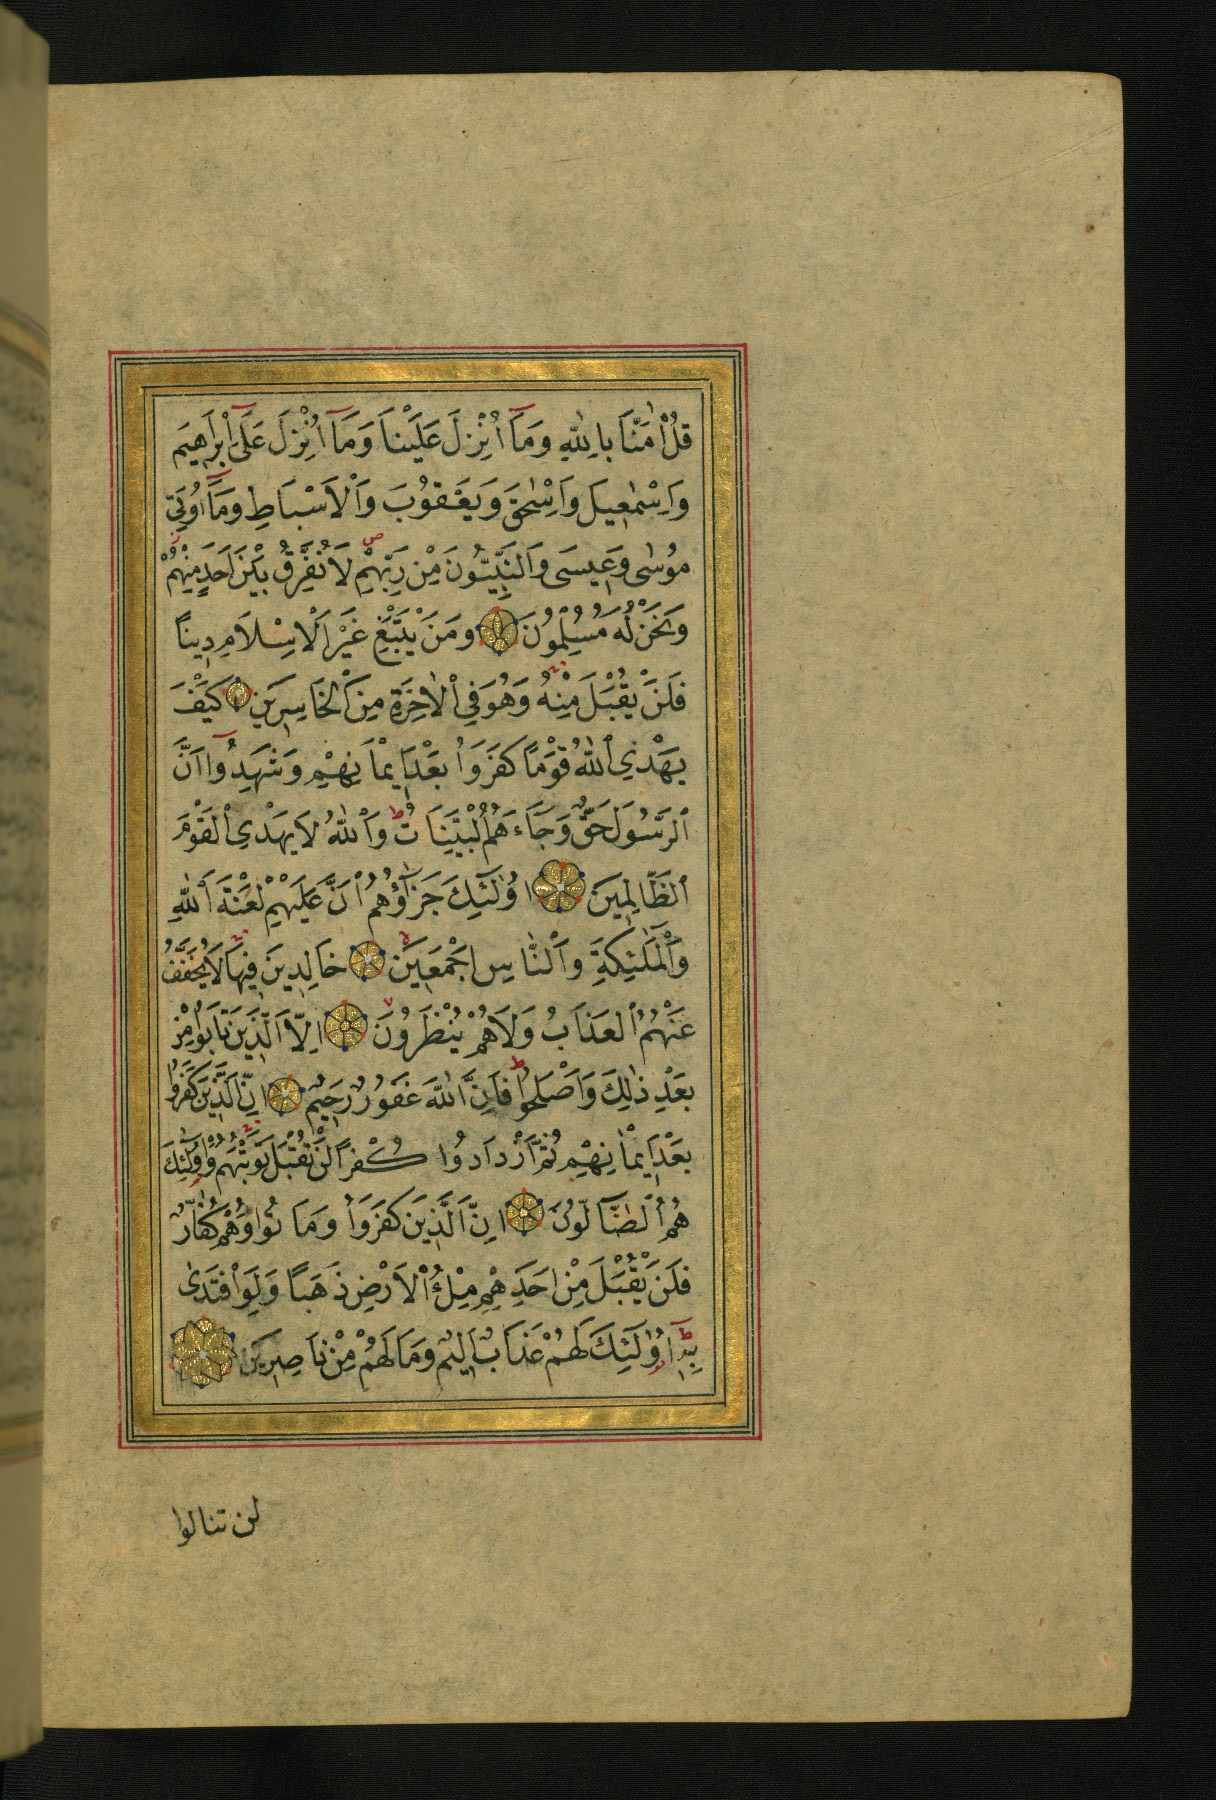 قُلْ اٰمَنَّا بِاللّٰهِ وَمَٓا اُنْزِلَ عَلَيْنَا وَمَٓا اُنْزِلَ عَلٰٓى اِبْرٰهِيمَ
وَاِسْمٰعِيلَ وَاِسْحٰقَ وَيَعْقُوبَ وَالْاَسْبَاطِ وَمَٓا اُوتِيَ
مُوسٰى وَعِيسَى وَالنَّبِيُّونَ مِنْ رَبِّهِمْ لَا نُفَرِّقُ بَيْنَ اَحَدٍ مِنْهُمْ
وَنَحْنُ لَهُ مُسْلِمُونَ وَمَنْ يَبْتَغِ غَيْرَ الْاِسْلَامِ دِينًا
فَلَنْ يُقْبَلَ مِنْهُ وَهُوَ فِي الْاٰخِرَةِ مِنَ الْخَاسِرِينَ كَيْفَ
يَهْدِي اللّٰهُ قَوْمًا كَفَرُوا بَعْدَ اِيمَانِهِمْ وَشَهِدُٓوا اَنَّ
الرَّسُولَ حَقٌّ وَجَٓاءَهُمُ الْبَيِّنَاتُ وَاللّٰهُ لَا يَهْدِي الْقَوْمَ
الظَّالِمِينَ اُولٰٓئِكَ جَزَٓاؤُهُمْ اَنَّ عَلَيْهِمْ لَعْنَةَ اللّٰهِ
وَالْمَلٰٓئِكَةِ وَالنَّاسِ اَجْمَعِينَ خَالِدِينَ فِيهَا لَا يُخَفَّفُ
عَنْهُمُ الْعَذَابُ وَلَا هُمْ يُنْظَرُونَ اِلَّا الَّذِينَ تَابُوا مِنْ
بَعْدِ ذٰلِكَ وَاَصْلَحُوا فَاِنَّ اللّٰهَ غَفُورٌ رَحِيمٌ اِنَّ الَّذِينَ كَفَرُوا
بَعْدَ اِيمَانِهِمْ ثُمَّ ازْدَادُوا كُفْرًا لَنْ تُقْبَلَ تَوْبَتُهُمْ وَاُولٰٓئِكَ
هُمُ الضَّٓالُّونَ اِنَّ الَّذِينَ كَفَرُوا وَمَاتُوا وَهُمْ كُفَّارٌ
فَلَنْ يُقْبَلَ مِنْ اَحَدِهِمْ مِلْءُ الْاَرْضِ ذَهَبًا وَلَوِ افْتَدٰى
بِهِ اُولٰٓئِكَ لَهُمْ عَذَابٌ اَلِيمٌ وَمَا لَهُمْ مِنْ نَاصِرِينَ
لن تنالوا